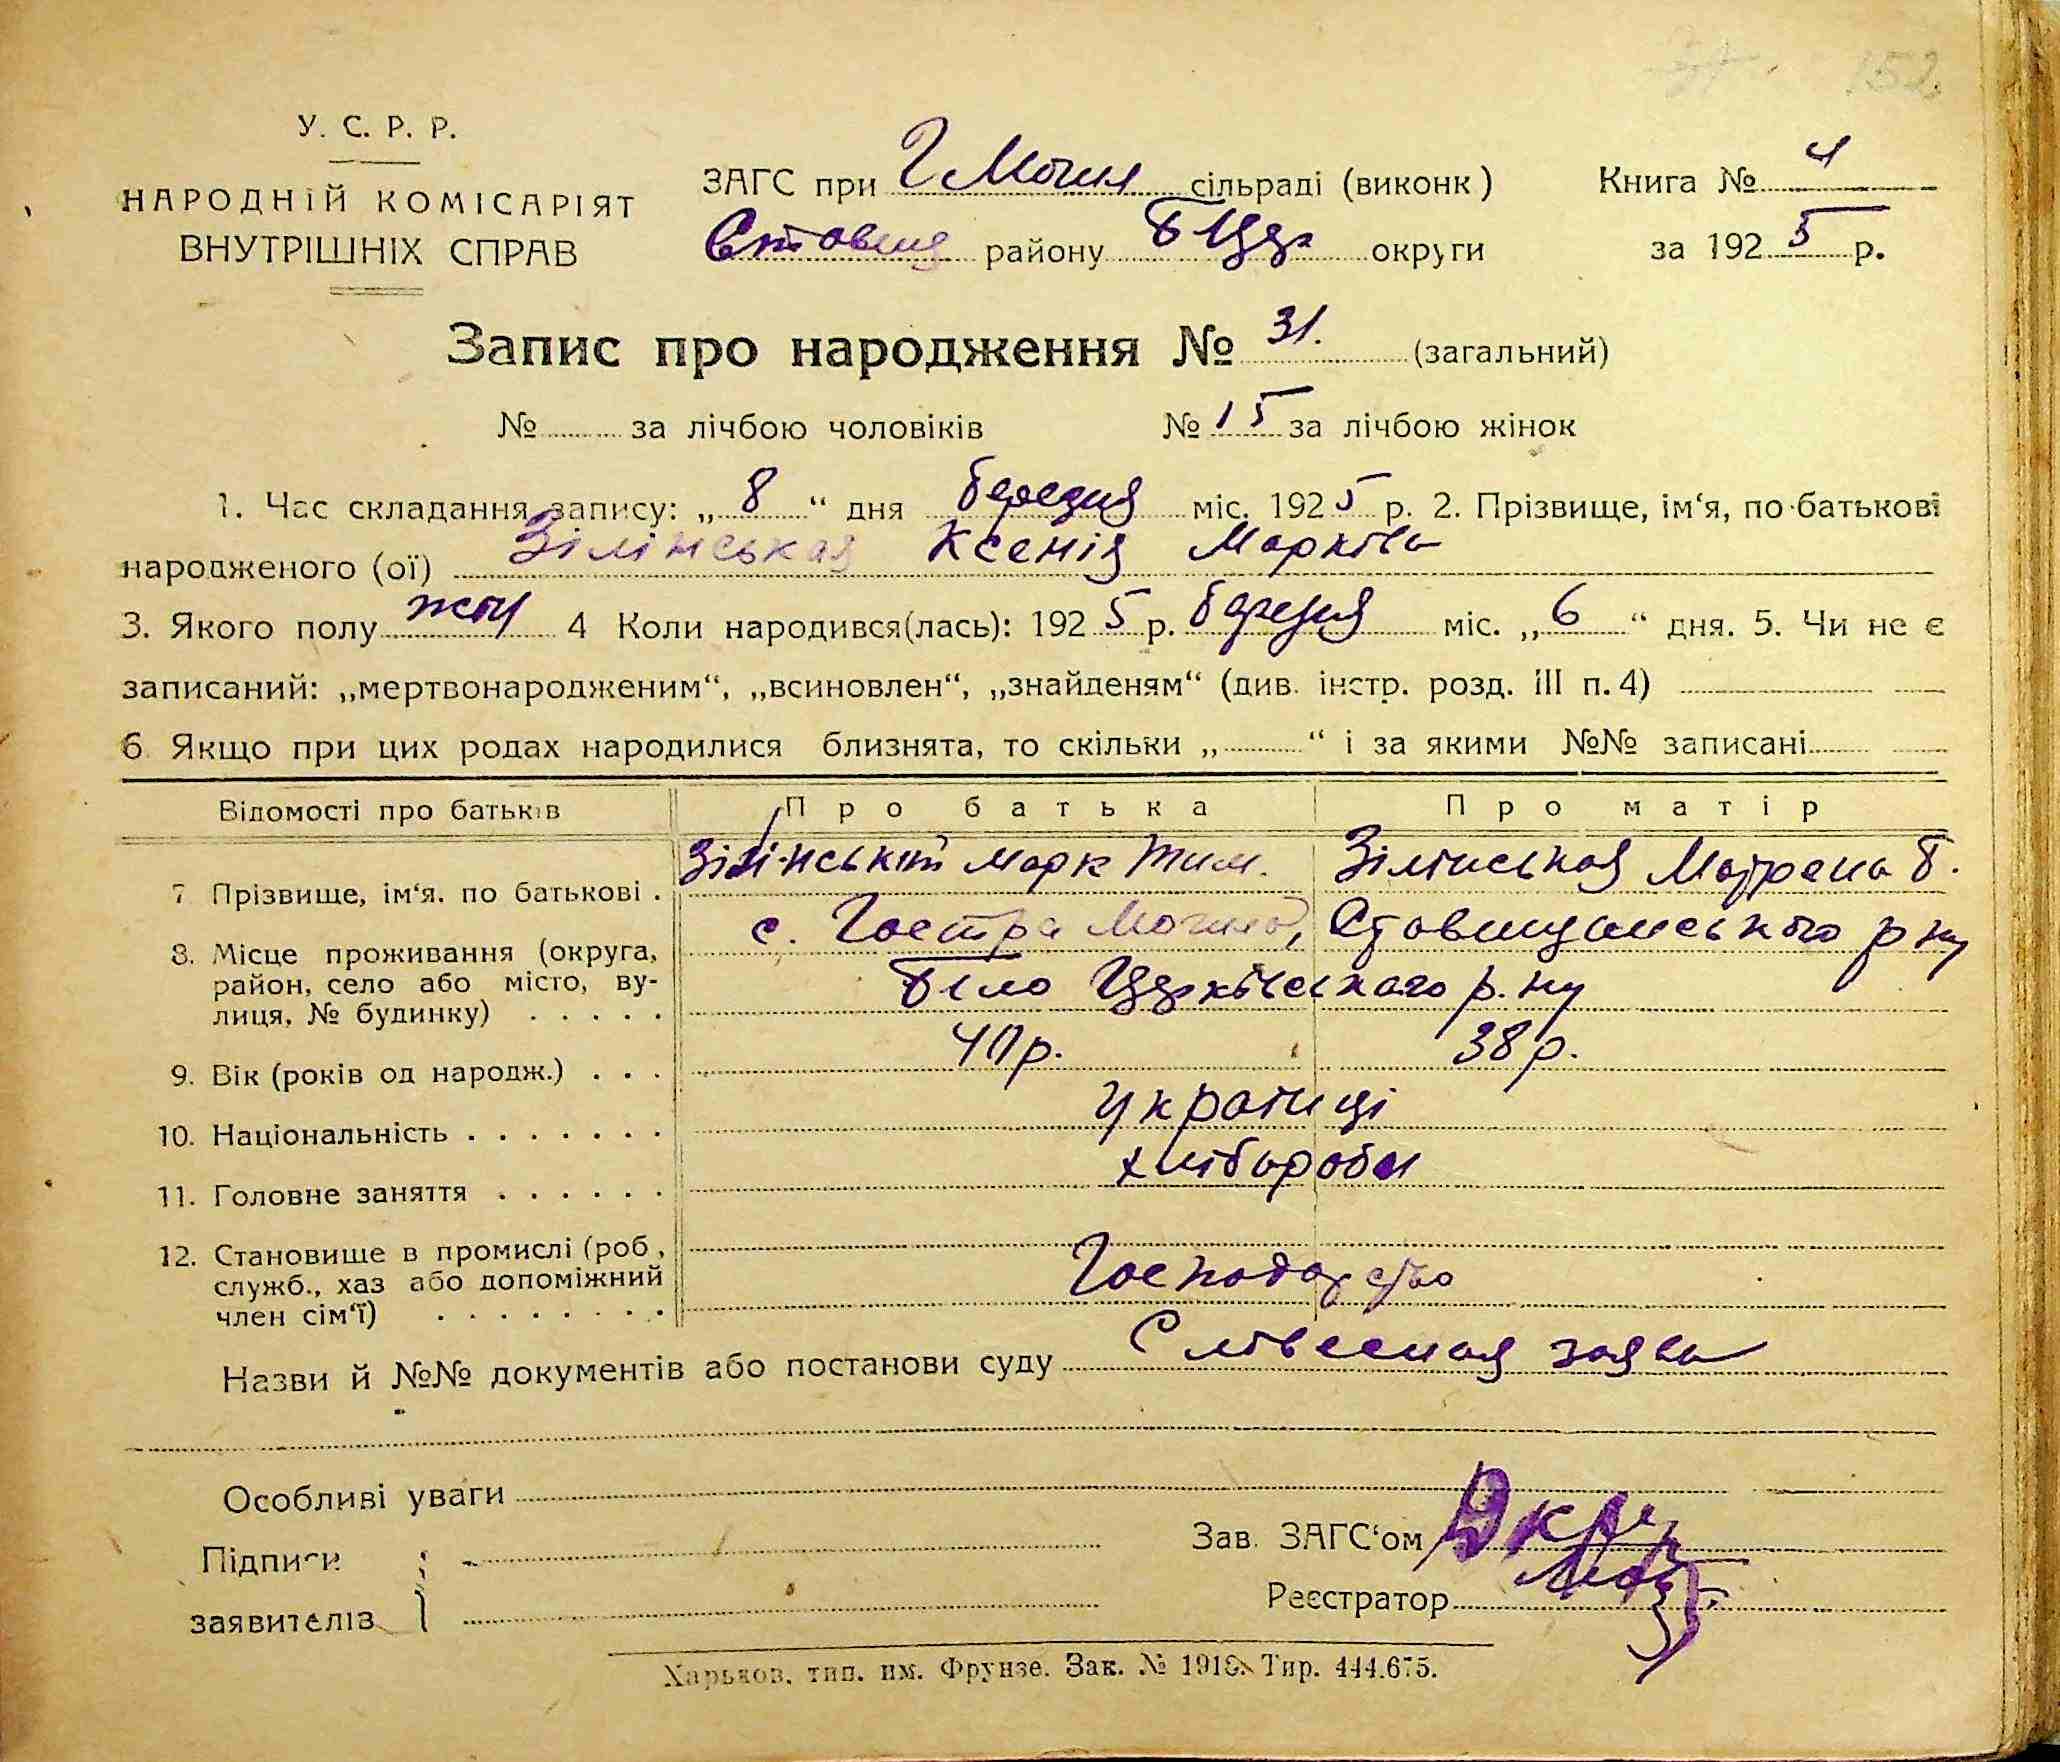 152
У. С. Р. Р.
НАРОДНІЙ КОМІСАРІЯТ
ВНУТРІШНІХ СПРАВ
ЗАГС при Г Могил сільраді (виконк)
Ставищ району БЦер округи
Книга № 4
за 1925 р.
Запис про народження № 31. (загальний)
№ за лічбою чоловіків № 15 за лічбою жінок
1. Час складання запису: „8“ дня березня міс. 1925 р. 2. Прізвище, ім‘я, по-батькові
народженого (ої) Зілінськая Ксенія Марківа
3. Якого полу жін 4 Коли народився(лась): 1925 р. березня міс. „6“ дня. 5. Чи не є
записаний: „мертвонародженим“, „всиновлен“, „знайденям“ (див. інстр. розд. III п. 4)
6 Якщо при цих родах народилися близнята, то скільки „ “ і за якими №№ записані
Відомості про батьків Про батька Про матір
7 Прізвище, ім‘я. по батькові . Зілінський Марк Тим. Зілінськая Матрена Б.
8. Місце проживання (округа, район, село або місто, ву- лиця, № будинку) . . . . .
с. Гостра Могила, Ставищанського р ну
Біло Церківського р. ну
9. Вік (років од народж.) . . . 40 р. 38 р.
10. Національність . . . . . . . українці
11. Головне заняття . . . . . . хлібороби
12. Становище в промислі (роб, служб., хаз або допоміжний
член сім‘ї) . . . . . . . . Господарство
Назви й №№ документів або постанови суду Слівесная заява
Особливі уваги
Підписи
заявителів
Зав. ЗАГС‘ом
Реєстратор
Харьков, тип. им. Фрунзе. Зак. № 1918. Тир. 444.675.